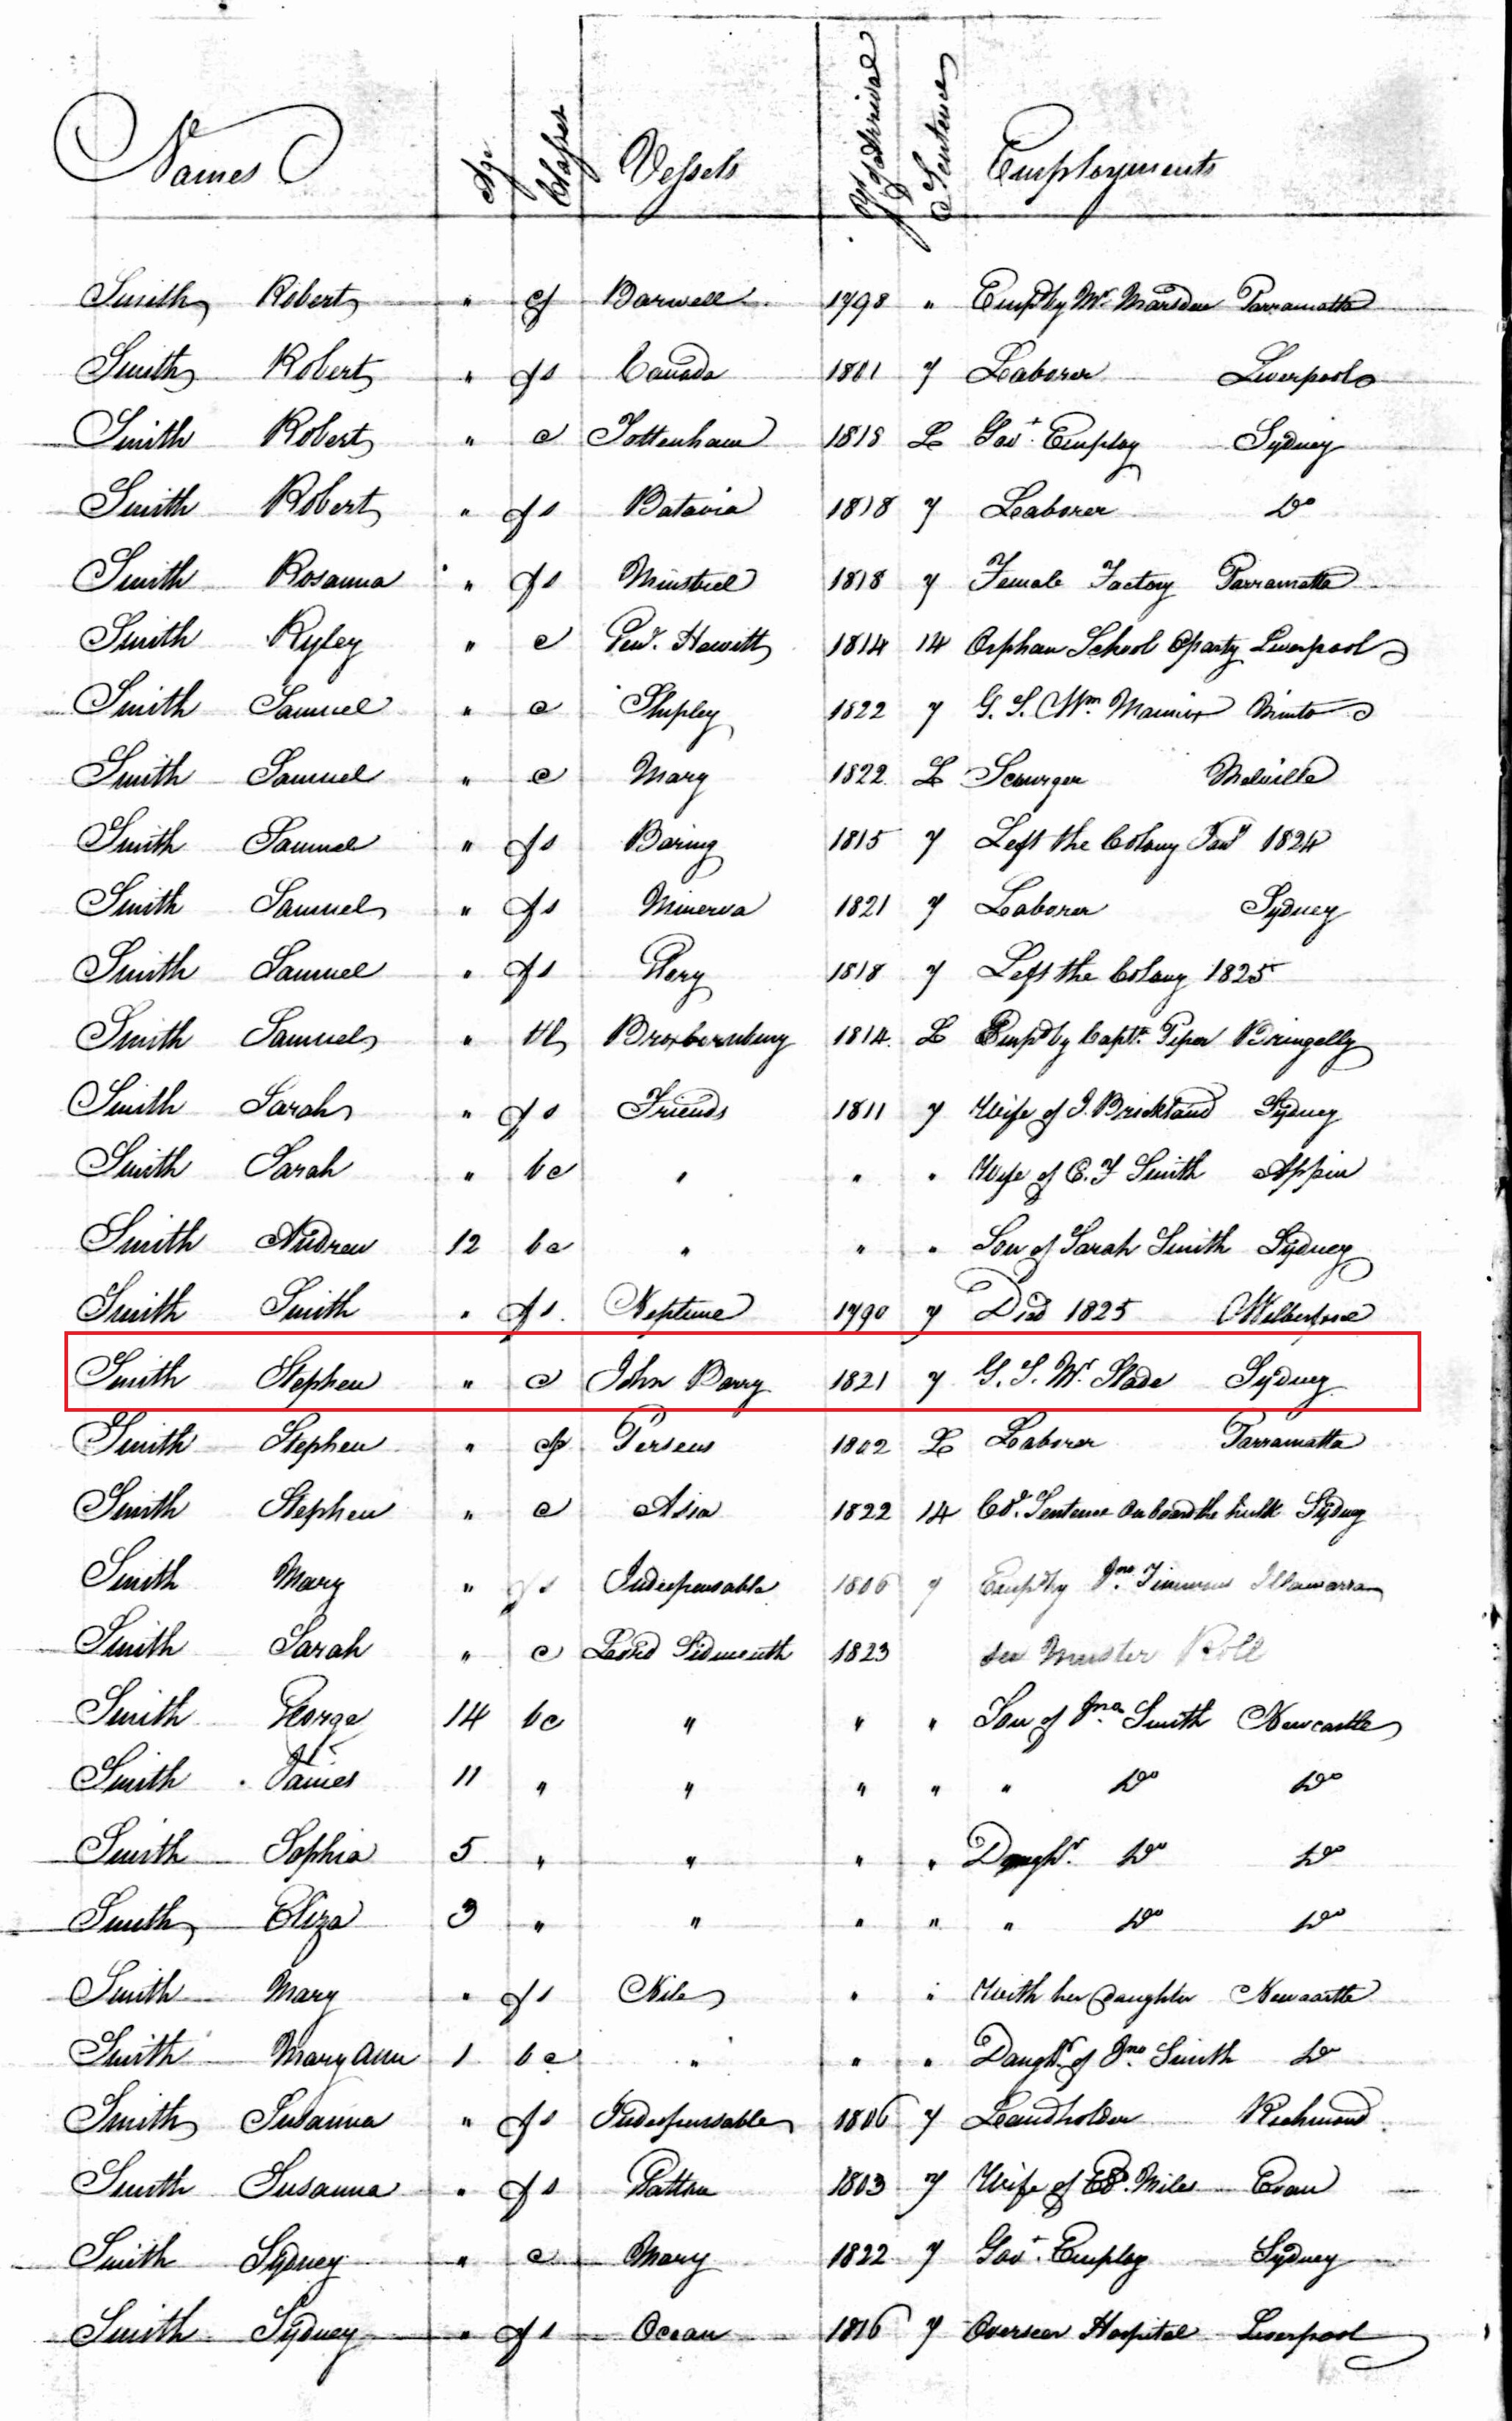 Names Age Classes Vessels Yr of Arrival Sentence Employments
Smith Robert " cf Barwell 1798 " Empd by Mr Marsden Parramatta
Smith Robert " fs Canada 1801 7 Laborer Liverpool
Smith Robert " c Tottenham 1818 L Govt. Employ Sydney
Smith Robert " fs Batavia 1818 7 Laborer Do
Smith Rosanna " fs Minstrel 1818 7 Female Factory Parramatta
Smith Ryley " c Genl. Hewitt 1814 14 Orphan School Liverpool
Smith Samuel " c Shipley 1822 7 G. S. Wm. Mannix Minto
Smith Samuel " c Mary 1822 L Scourger Melville
Smith Samuel " fs Baring 1815 7 Left the Colony Jany 1824
Smith Samuel " fs Minerva 1821 7 Laborer Sydney
Smith Samuel " fs Glory 1818 7 Left the Colony 1825
Smith Samuel " tl Broxbornbury 1814 L Empd by Captn. Piper Bringelly
Smith Sarah " fs Friends 1811 7 Wife of J. Brickland Sydney
Smith Sarah " bc " " " Wife of C. F Smith Appin
Smith Andrew 12 bc " " " Son of Sarah Smith Sydney
Smith Smith " fs. Neptune 1790 7 Died 1825 Wilberforce
Smith Stephen " c John Barry 1821 7 G. S. Mr. Slade Sydney
Smith Stephen " cp Perseus 1802 L Laborer Parramatta
Smith Stephen " c Asia 1822 14 Col. Sentence on board the hulk Sydney
Smith Mary " fs Indespensable 1806 7 Empd by Jno. Timmons Illawarra
Smith Sarah " c Lord Sidmouth 1823 see Muster Roll
Smith George 14 bc " " " Son of Jno. Smith Newcastle
Smith James 11 " " " " " Do Do
Smith Sophia 5 " " " " Daughr. Do Do
Smith Eliza 3 " " " " " Do Do
Smith Mary " fs Nile " " With her Daughter Newcastle
Smith Mary Ann 1 bc " " " Daughr of Jno. Smith Do
Smith Susanna " fs Indespensable 1806 7 Landholder Richmond
Smith Susanna " fs Patton 1803 7 Wife of Ed. Miles Evan
Smith Sydney " c Mary 1822 7 Govt. Employ Sydney
Smith Sydney " fs Ocean 1816 7 Overseer Hospital Liverpool